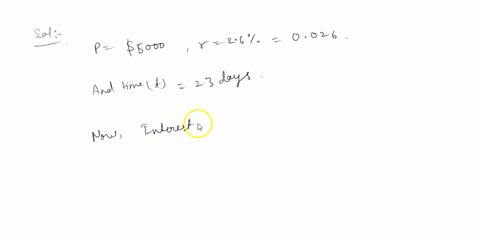 Sol:-
P = $5000 , r = 2.6% = 0.026 .
And time (t) = 23 days .
Now, Interest